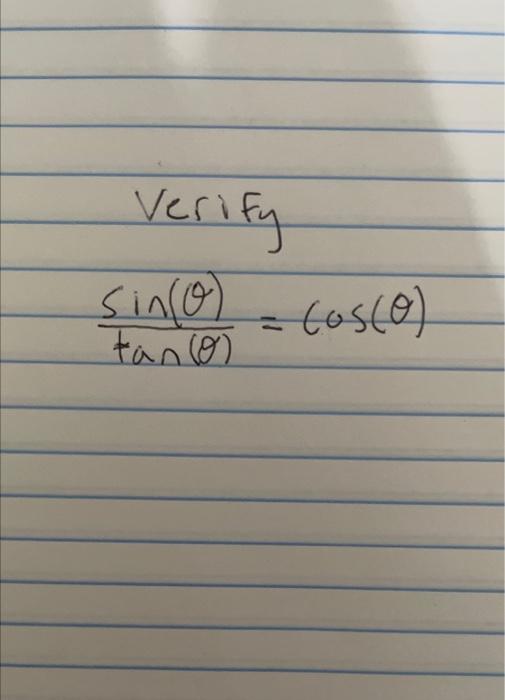 Verify
sin(θ)
tan(θ) = cos(θ)